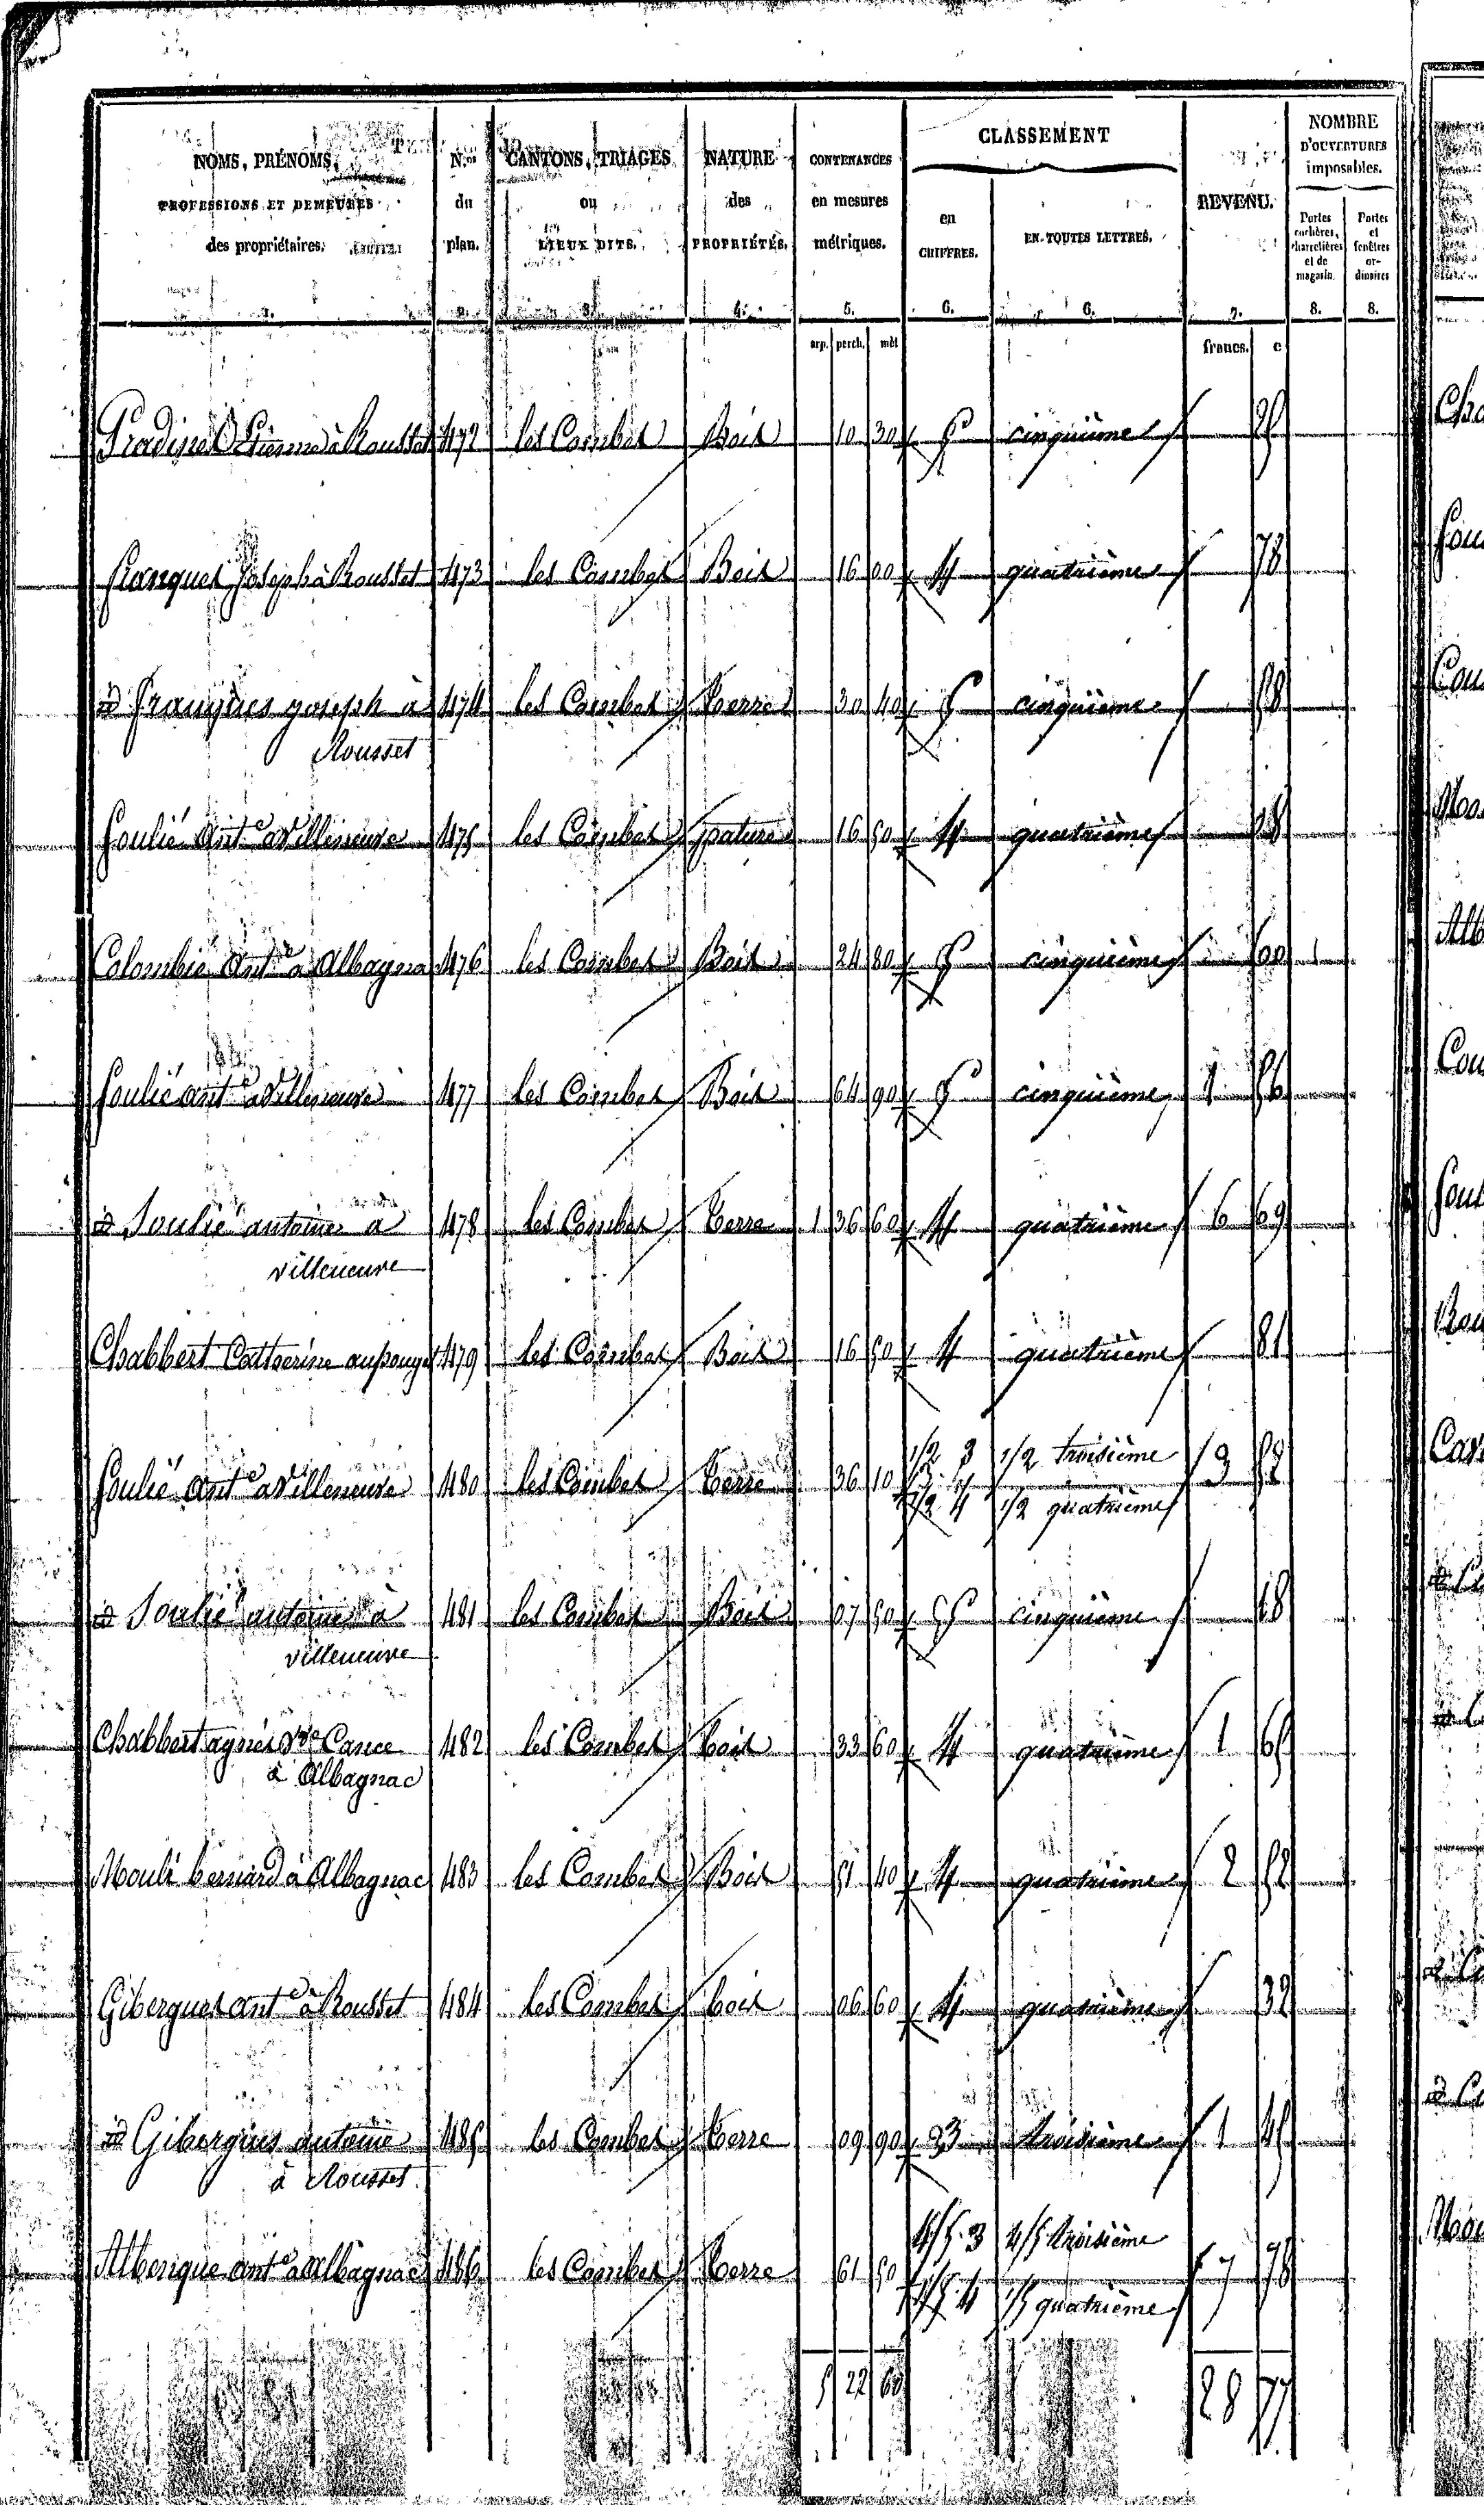 NOMS, PRÉNOMS,
PROFESSIONS ET DEMEURES
des propriétaires.
1.
N.os
du
plan.
2.
CANTONS, TRIAGES
ou
LIEUX DITS.
3.
NATURE
des
PROPRIÉTÉS.
4.
CONTENANCES
en mesures
métriques.
5.
CLASSEMENT
en
CHIFFRES.
6.
EN TOUTES LETTRES.
6.
REVENU.
7.
NOMBRE
D'OUVERTURES
imposables.
Portes
cochères,
charretières
et de
magasin.
8.
Portes
et
fenêtres
or-
dinaires
8.
arp. perch. mèt francs. c
Pradines Étienne à Rousset 472 les Combes Bois 10 30 5 cinquième 25
Franques Joseph à Rousset 473 les Combes Bois 16 00 4 quatrième 78
id franques joseph à 474 les Combes Terre 30 40 5 cinquième 58
Rousset
Soulié Ant.e à Villeneuve 475 les Combes pature 16 50 4 quatrième
Colombié Ant.e à Albagna 476 les Combes Bois 24 80 5 cinquième 60
Soulié ant.e à Villeneuve 477 les Combes Bois 64 90 5 cinquième 1 56
id Soulié antoine a 478 les Combes Terre 1 36 60 4 quatrième 6 69
villeneuve
Chabbert Catherine au pouget 479 les Combes Bois 16 50 4 quatrième 81
1/2 3 1/2 troisième
Soulié Ant.e à Villeneuve 480 les Combes Terre 36 10 3 52
1/2 4 1/2 quatrième
id Soulié antoine à 481 les Combes Bois 07 50 5 cinquième 18
villeneuve
Chabbert agnés v.ve Cance 482 les Combes bois 33 60 4 quatrième 1 65
à Albagnac
Mouli bernard à Albagnac 483 les Combes Bois 51 40 4 quatrième 2 52
Gibergues ant.e à Rousset 484 les Combes bois 06 60 4 quatrième 32
id Gibergues antoine 485 les Combes Terre 09 90 3 troisième 1 45
à Rousset
4/5 3 4/5 troisième
Alberique ant.e à Albagnac 486 les Combes Terre 61 50 7 78
1/5 4 1/5 quatrième
5 22 60 28 77